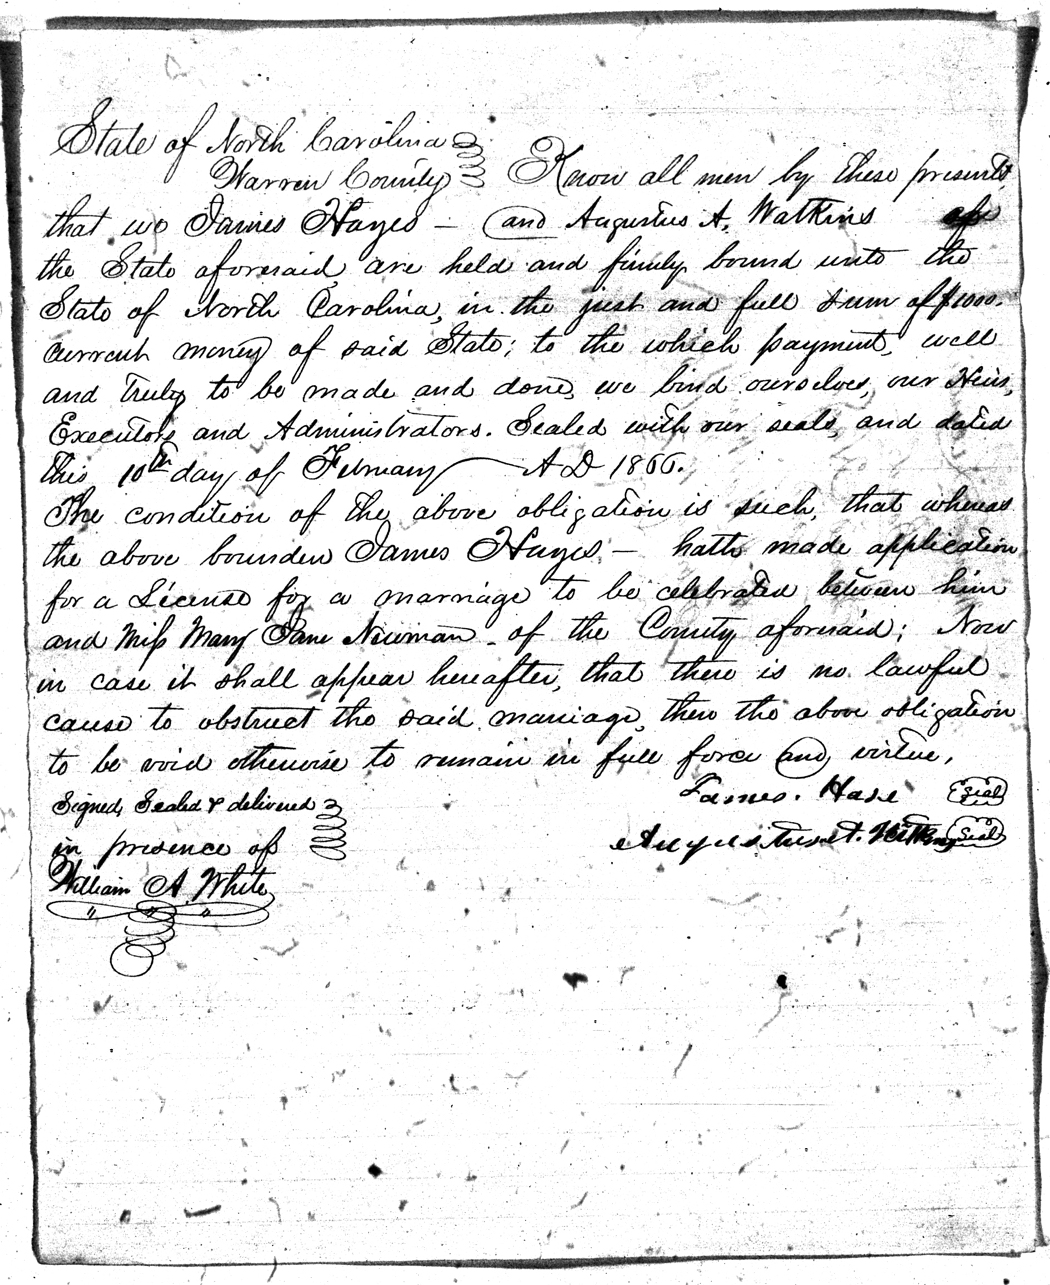 State of North Carolina
Warren County Know all men by these presents,
that we James Hayes — and Augustus A. Watkins of
the State aforesaid are held and firmly bound unto the
State of North Carolina, in the just and full sum of $1000.
current money of said State; to the which payment, well
and truly to be made and done, we bind ourselves, our Heirs,
Executors and Administrators. Sealed with our seals, and dated
this 10th day of February A D 1866.
The condition of the above obligation is such, that whereas
the above bounden James Hayes — hath made application
for a License for a marriage to be celebrated between him
and Miss Mary Jane Newman - of the County aforesaid; Now
in case it shall appear hereafter, that there is no lawful
cause to obstruct the said marriage, then the above obligation
to be void otherwise to remain in full force and virtue.
Signed, Sealed & delivered James. Hase Seal
in presence of Augustus A. Seal
William A. White